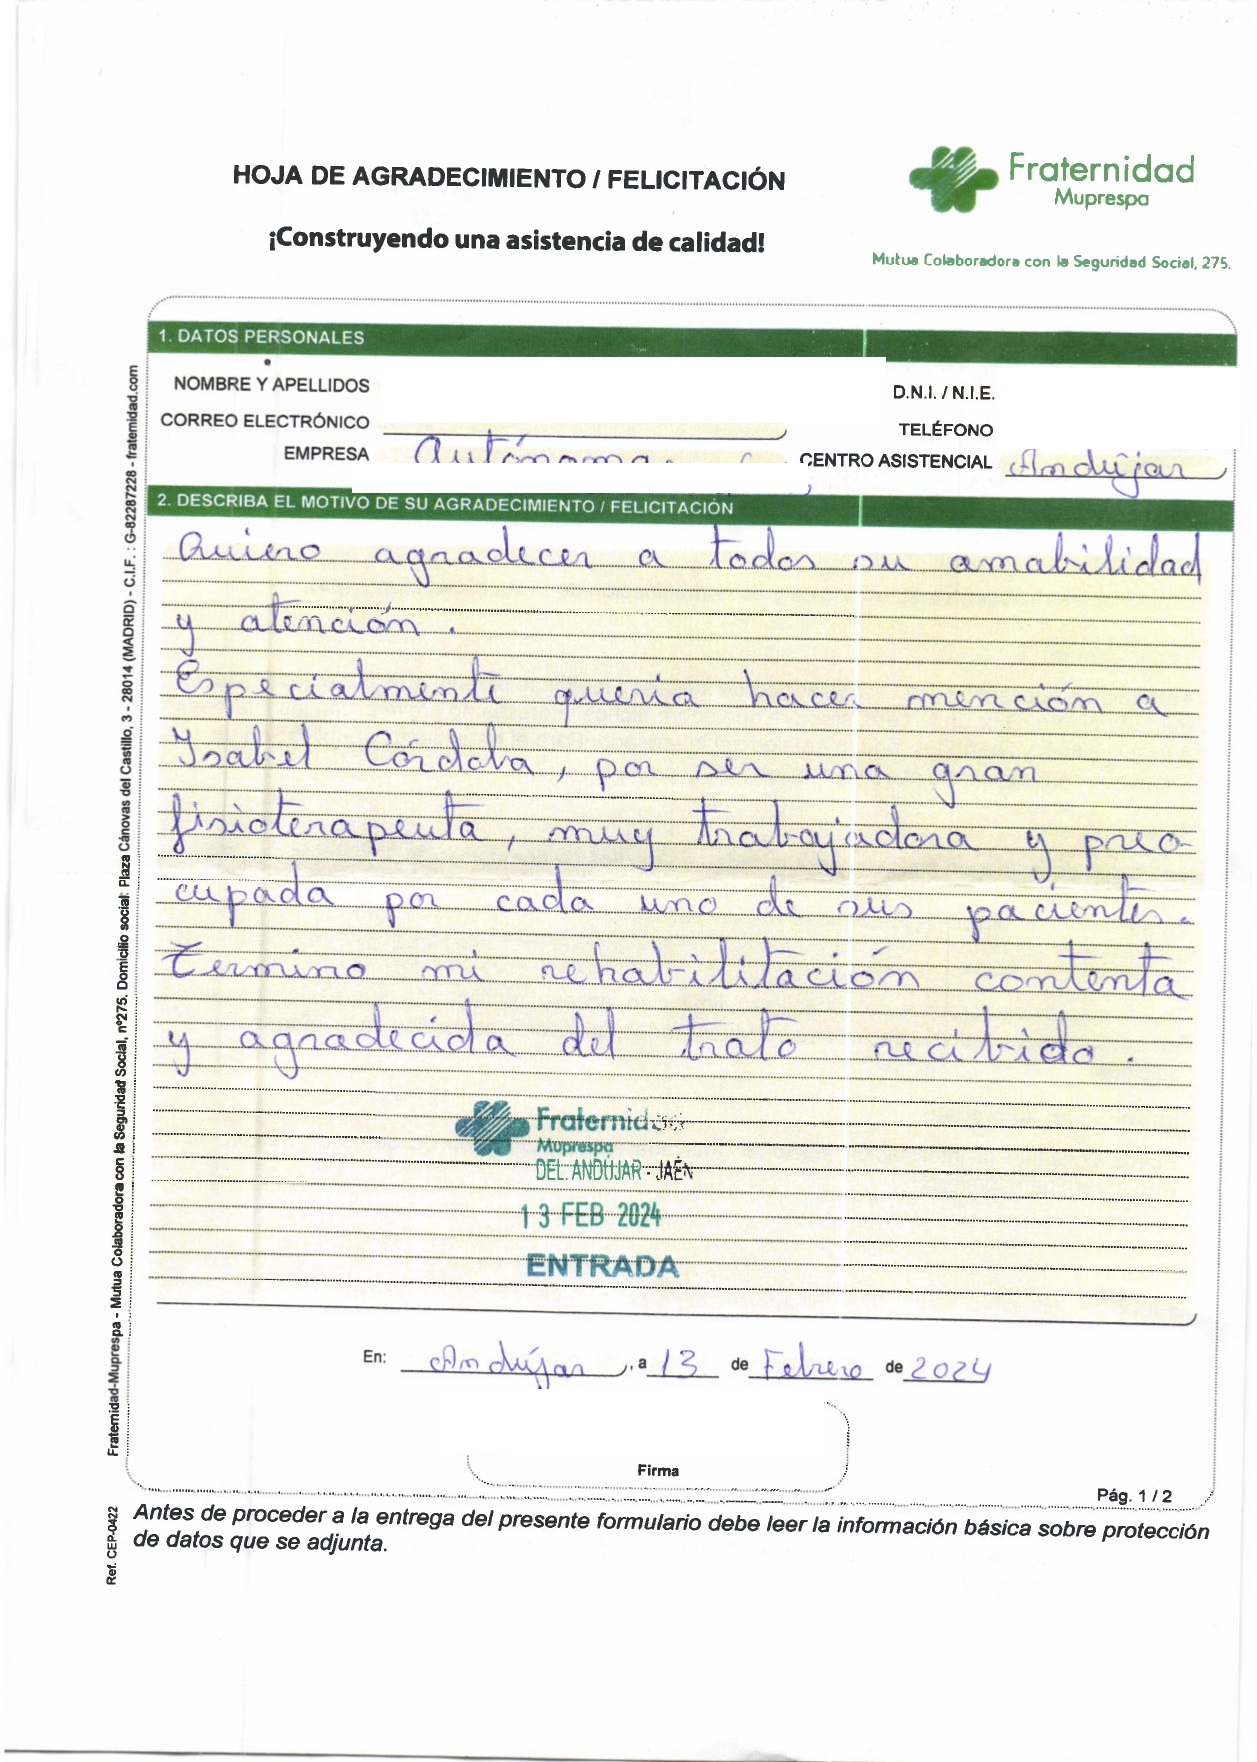 HOJA DE AGRADECIMIENTO / FELICITACIÓN
¡Construyendo una asistencia de calidad!
Fraternidad
Muprespa
Mutua Colaboradora con la Seguridad Social, 275.
1. DATOS PERSONALES
NOMBRE Y APELLIDOS
D.N.I. / N.I.E.
CORREO ELECTRÓNICO
TELÉFONO
EMPRESA Autónoma
CENTRO ASISTENCIAL Andújar
2. DESCRIBA EL MOTIVO DE SU AGRADECIMIENTO / FELICITACIÓN
Quiero agradecer a todos su amabilidad
y atención.
Especialmente quería hacer mención a
Isabel Córdoba, por ser una gran
fisioterapeuta, muy trabajadora y preo-
cupada por cada uno de sus pacientes.
Termino mi rehabilitación contenta
y agradecida del trato recibido.
Fraternidad
Muprespa
DEL. ANDÚJAR - JAÉN
13 FEB 2024
ENTRADA
En: Andújar, a 13 de Febrero de 2024
Firma
Pág. 1 / 2
Antes de proceder a la entrega del presente formulario debe leer la información básica sobre protección
de datos que se adjunta.
Fraternidad-Muprespa - Mutua Colaboradora con la Seguridad Social, nº275. Domicilio social: Plaza Cánovas del Castillo, 3 - 28014 (MADRID) - C.I.F. : G-82287228 - fraternidad.com
Ref. CEP-0422